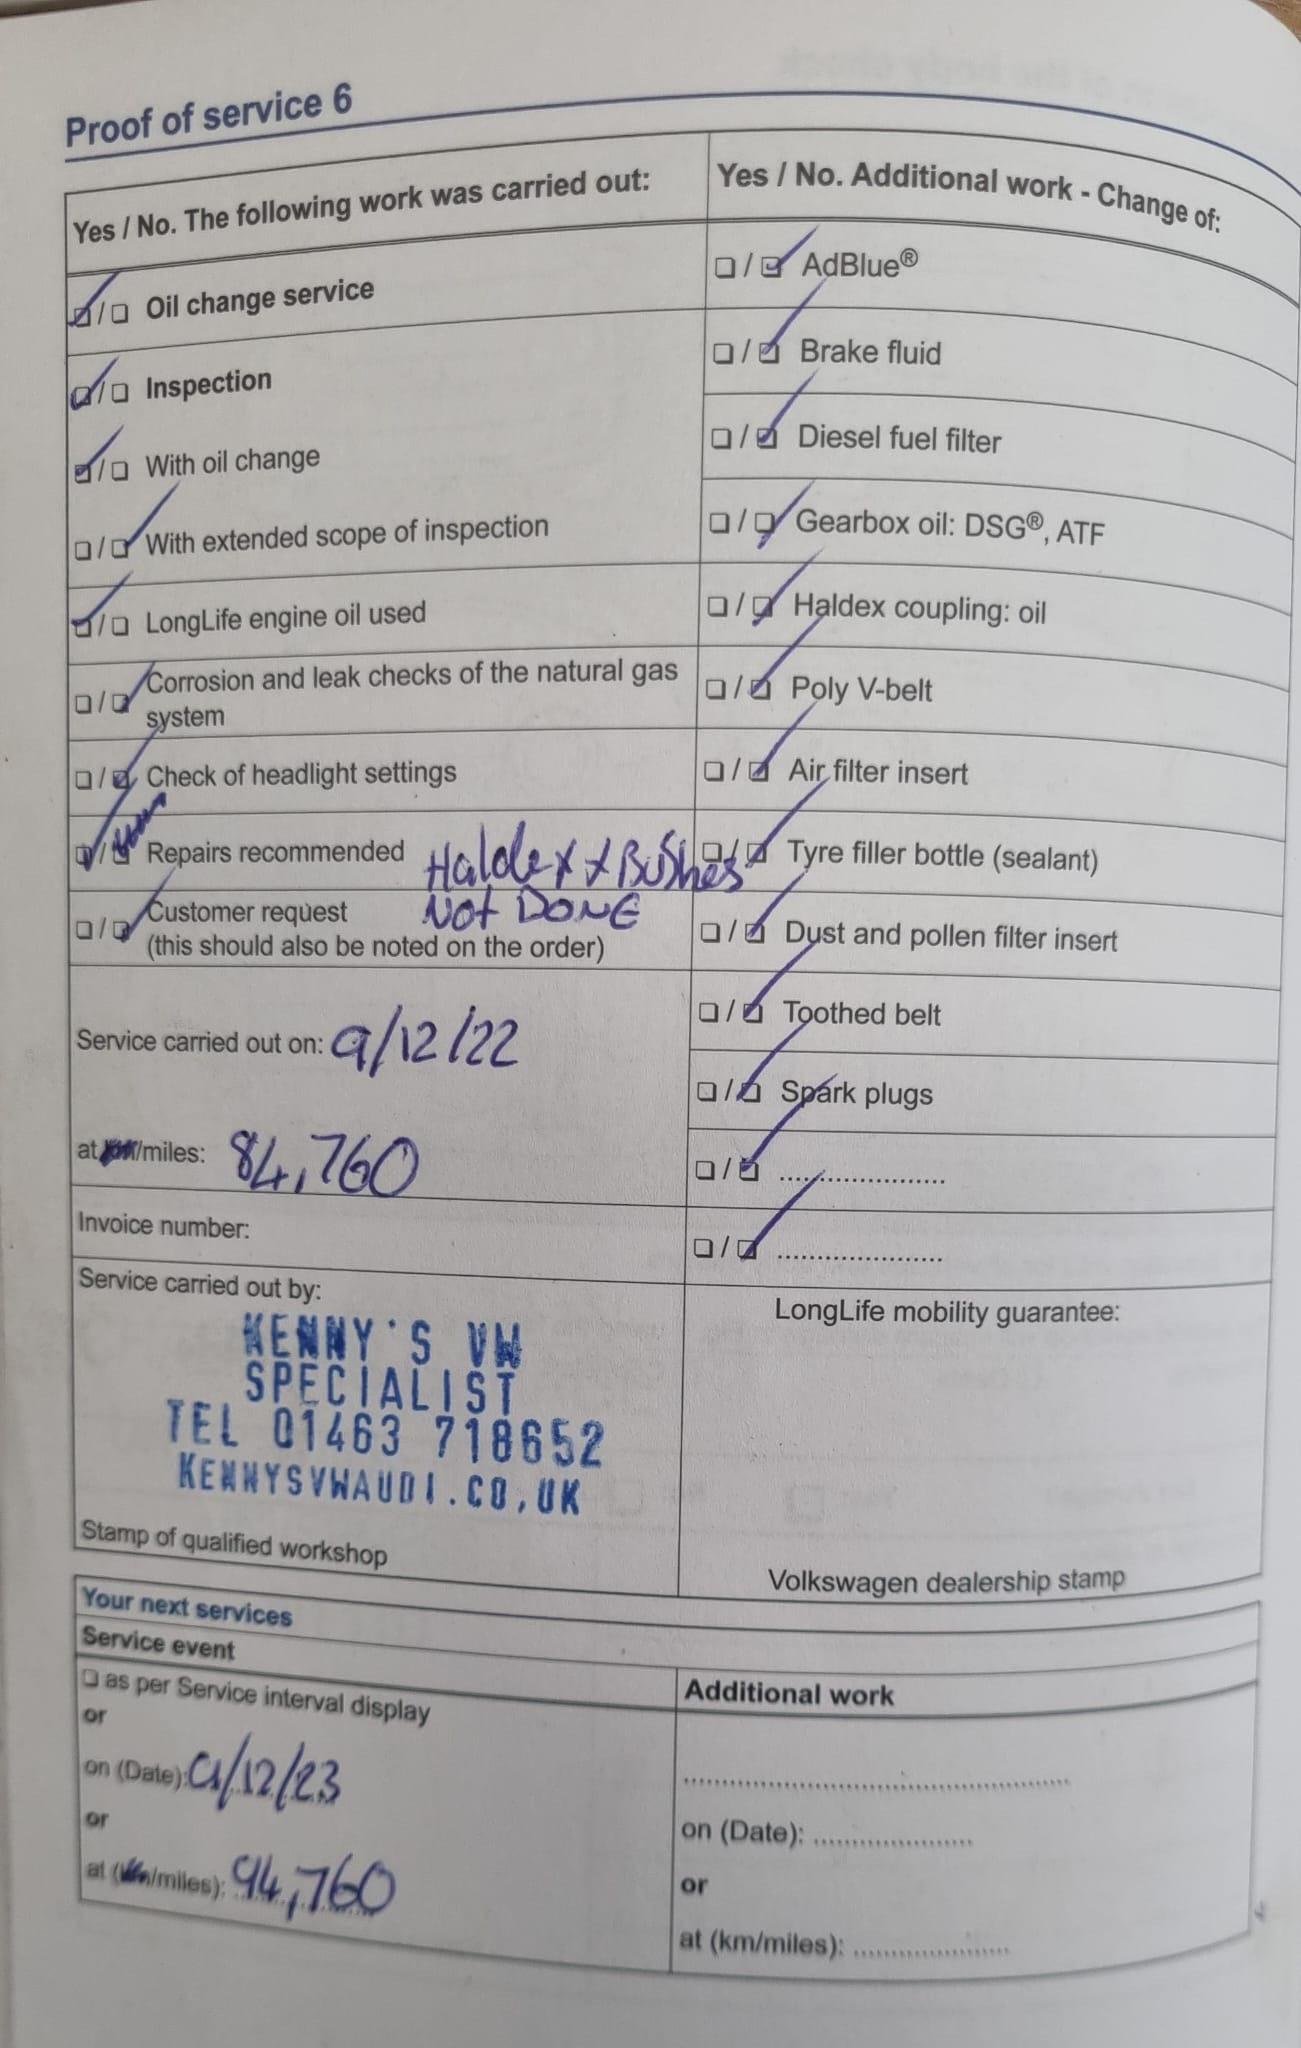 Proof of service 6
Yes / No. The following work was carried out:
Oil change service
Inspection
With oil change
With extended scope of inspection
LongLife engine oil used
Corrosion and leak checks of the natural gas
system
Check of headlight settings
Repairs recommended Haldex + Bushes
NOT DONE
Customer request
(this should also be noted on the order)
Service carried out on: 9/12/22
at km/miles: 84,760
Invoice number:
Service carried out by:
KENNY'S VW
SPECIALIST
TEL 01463 718652
KENNYSVWAUDI.CO.UK
Stamp of qualified workshop
Yes / No. Additional work - Change of:
AdBlue®
Brake fluid
Diesel fuel filter
Gearbox oil: DSG®, ATF
Haldex coupling: oil
Poly V-belt
Air filter insert
Tyre filler bottle (sealant)
Dust and pollen filter insert
Toothed belt
Spark plugs
LongLife mobility guarantee:
Volkswagen dealership stamp
Your next services
Service event
as per Service interval display
or
on (Date): 9/12/23
or
at (km/miles): 94,760
Additional work
on (Date): ....................
or
at (km/miles): ....................